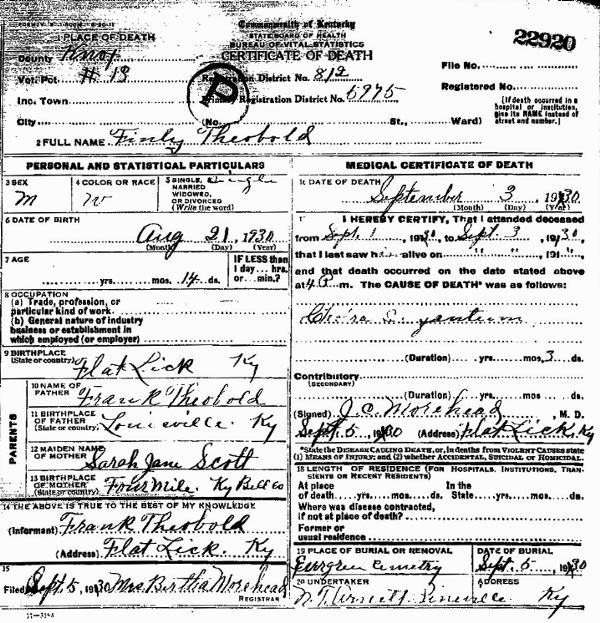 Commonwealth of Kentucky
STATE BOARD OF HEALTH
BUREAU OF VITAL STATISTICS
CERTIFICATE OF DEATH
22920
1 PLACE OF DEATH
County Knox
Vot. Pct # 18
Inc. Town
City
Registration District No. 812
Primary Registration District No. 5975
P
(No. St., Ward)
File No.
Registered No.
(If death occurred in a hospital or institution, give its NAME instead of street and number.)
2 FULL NAME Finly Theobold
PERSONAL AND STATISTICAL PARTICULARS
3 SEX
M
4 COLOR OR RACE
W
5 SINGLE, MARRIED WIDOWED, OR DIVORCED (Write the word)
Single
6 DATE OF BIRTH
Aug 21, 1930
(Month) (Day) (Year)
7 AGE
yrs. mos. 14 ds.
IF LESS than 1 day hrs. or min.?
8 OCCUPATION
(a) Trade, profession, or particular kind of work
(b) General nature of industry business or establishment in which employed (or employer)
9 BIRTHPLACE (State or country)
Flat Lick Ky
PARENTS
10 NAME OF FATHER
Frank Theobold
11 BIRTHPLACE OF FATHER (State or country)
Louisville, Ky
12 MAIDEN NAME OF MOTHER
Sarah Jane Scott
13 BIRTHPLACE OF MOTHER (State or country)
Four Mile, Ky Bell co
14 THE ABOVE IS TRUE TO THE BEST OF MY KNOWLEDGE
(Informant) Frank Theobold
(Address) Flat Lick, Ky
15
Filed Sept. 5, 1930 Mrs Birtha Morehead
REGISTRAR
MEDICAL CERTIFICATE OF DEATH
16 DATE OF DEATH
September 3, 1930
(Month) (Day) (Year)
17 I HEREBY CERTIFY, That I attended deceased
from Sept. 1, 1930, to Sept. 3, 1930,
that I last saw h alive on " " , 191 ,
and that death occurred on the date stated above
at m. The CAUSE OF DEATH* was as follows:
(Duration) yrs. mos. 3 ds.
Contributory
(SECONDARY)
(Duration) yrs. mos. ds.
(Signed) J.C. Morehead, M. D.
Sept. 5, 1930 (Address) Flat Lick, Ky
*State the DISEASE CAUSING DEATH, or, in deaths from VIOLENT CAUSES state (1) MEANS OF INJURY; and (2) whether ACCIDENTAL, SUICIDAL or HOMICIDAL.
18 LENGTH OF RESIDENCE (FOR HOSPITALS, INSTITUTIONS, TRANSIENTS OR RECENT RESIDENTS)
At place of death yrs. mos. ds. In the State yrs. mos. ds.
Where was disease contracted, if not at place of death?
Former or usual residence
19 PLACE OF BURIAL OR REMOVAL
Evergreen Cemetry
DATE OF BURIAL
Sept. 5, 1930
20 UNDERTAKER
Arnett
ADDRESS
Pineville Ky